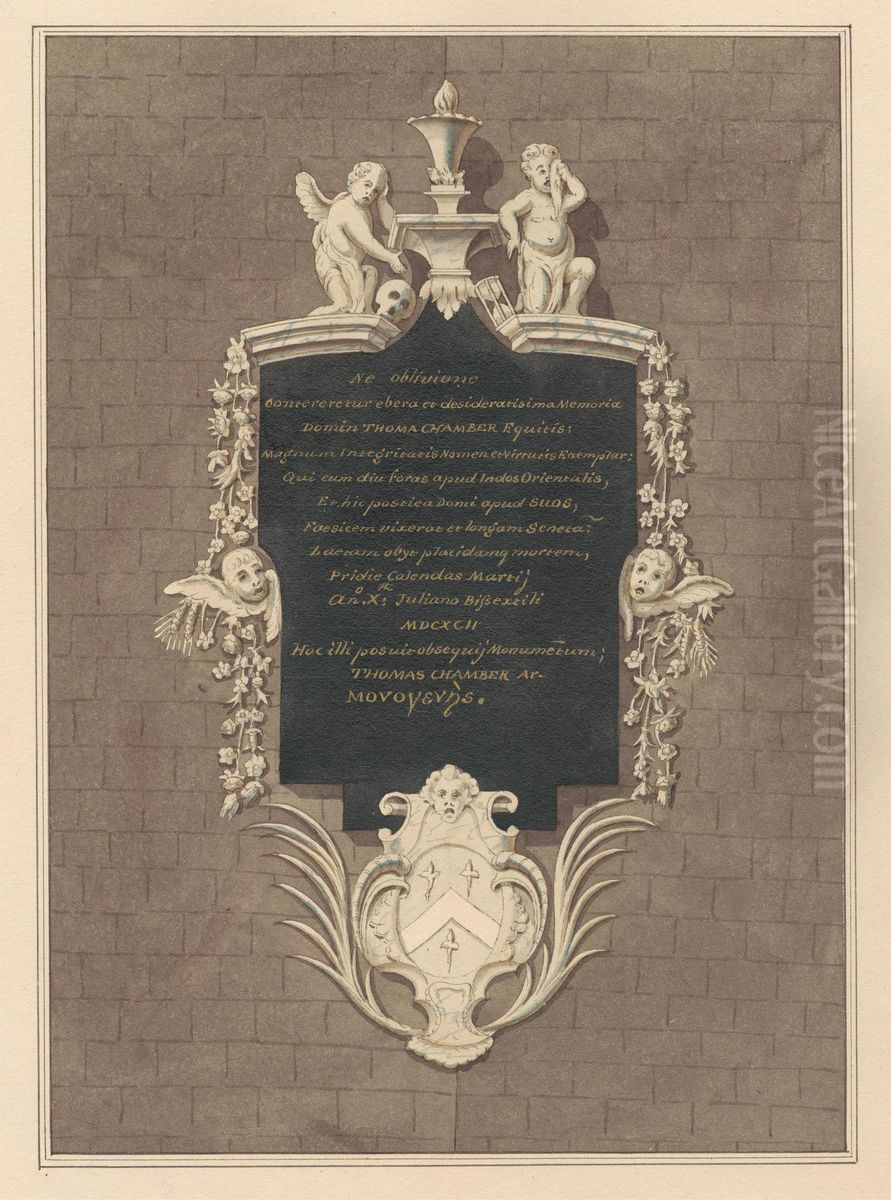 Ne oblivione
Contereretur ebera et desideratisima Memoria
Domin THOMA CHAMBER Equitis:
Magnum Integritatis Nomen et Virtutis Exemplar:
Qui cum diu foras apud Indos Orientalis,
Et hic postica Domi apud SUOS,
Faesicem vixerat et longam Seneta:~
Zdetam obyt placidamq mortem,
Pridie Calendas Martij
Año. X:tk Juliano Bißextili
MDCXCII
Hoc illi posuit obsequij Monumētum;
THOMAS CHAMBER Ar.
MOVOγενὴς.
NiceArtGallery.com